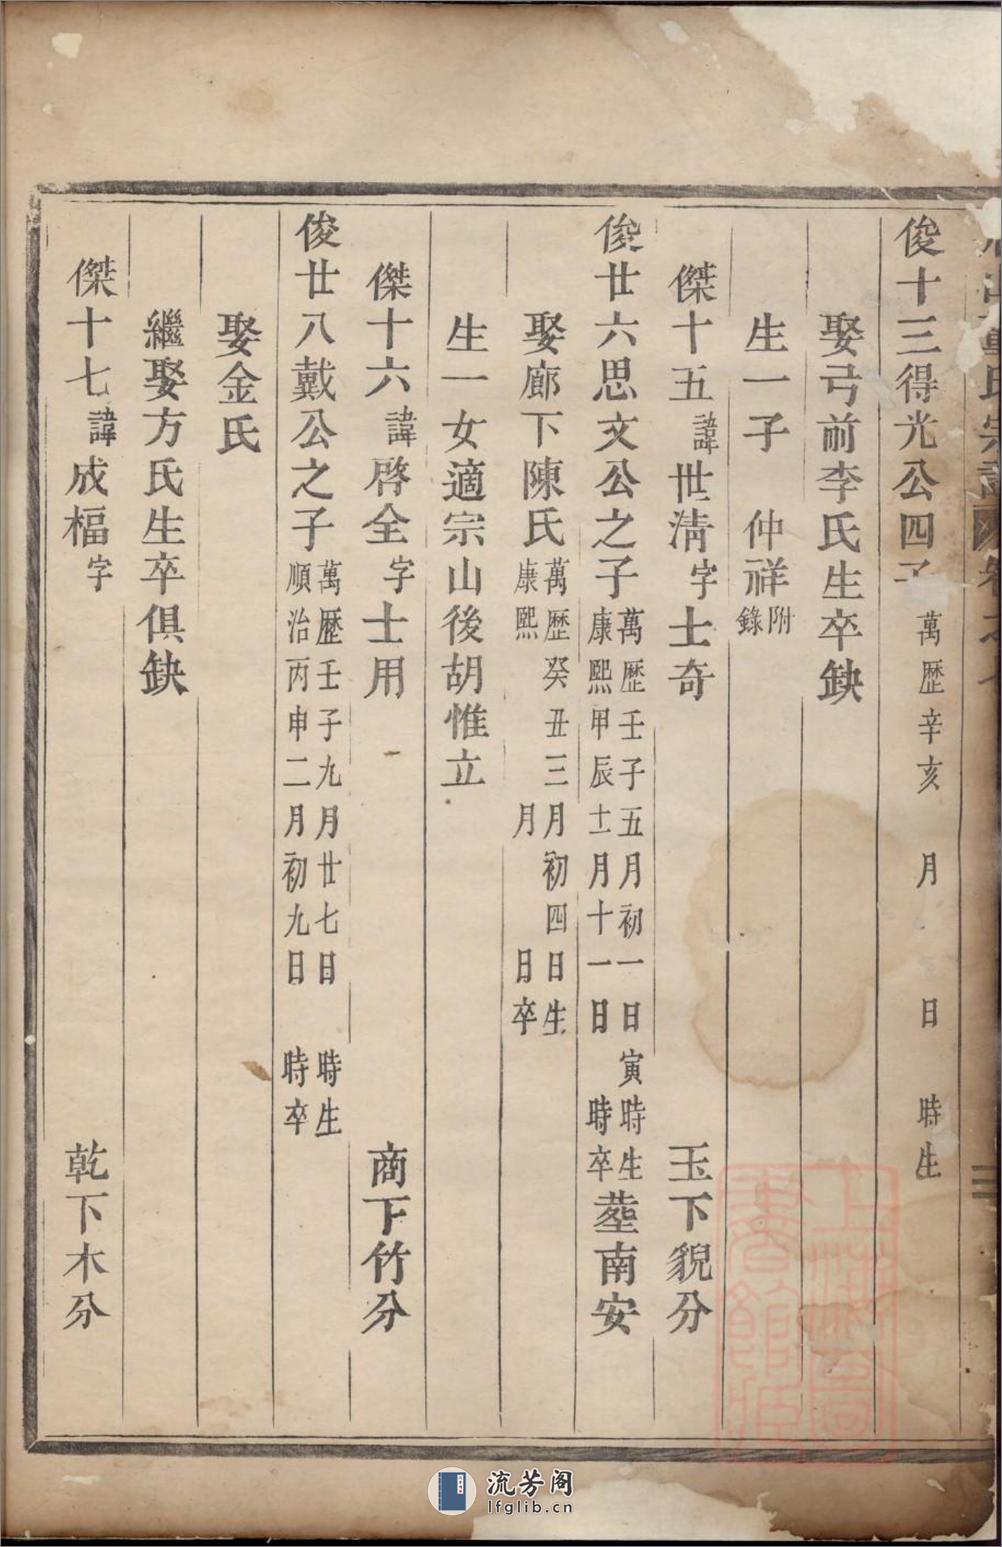 氏宗譜 卷之七
俊十三得光公四子 萬歷辛亥 月 日 時生
娶弓前李氏生卒缺
生一子 仲祥附錄
傑十五諱世淸字士奇 玉下貌分
俊廿六思文公之子 萬歷壬子五月初一日寅時生 康熙甲辰十二月十一日 時卒 塟南安
娶廊下陳氏 萬歷癸丑三月初四日生 康熙 月 日卒
生一女適宗山後胡惟立
傑十六諱啓全字士用 商下竹分
俊廿八戴公之子 萬歷壬子九月廿七日 時生 順治丙申二月初九日 時卒
娶金氏
繼娶方氏生卒俱缺
傑十七諱成福字 乾下木分
上海圖書館藏
流芳阁
lfglib.cn